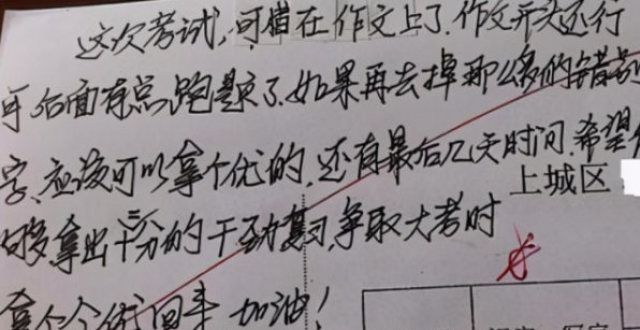 这次考试,可惜在作文上了.作文开头还行
可后面有点跑题了.如果再去掉那么多的错别
字,应该可以拿个优的,还有最后几天时间.希望
上城区
够拿出十二分的干劲复习,争取大考时
拿个优回来 加油!